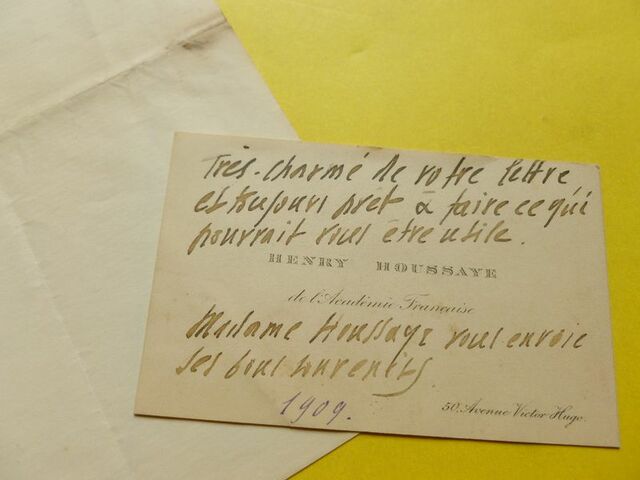 Très-charmé de votre lettre
et toujours prêt à faire ce qui
pourrait vous être utile.
HENRY HOUSSAYE
de l'Académie Française
Madame Houssaye vous envoie
ses bons souvenirs.
1909.
50. Avenue Victor Hugo.